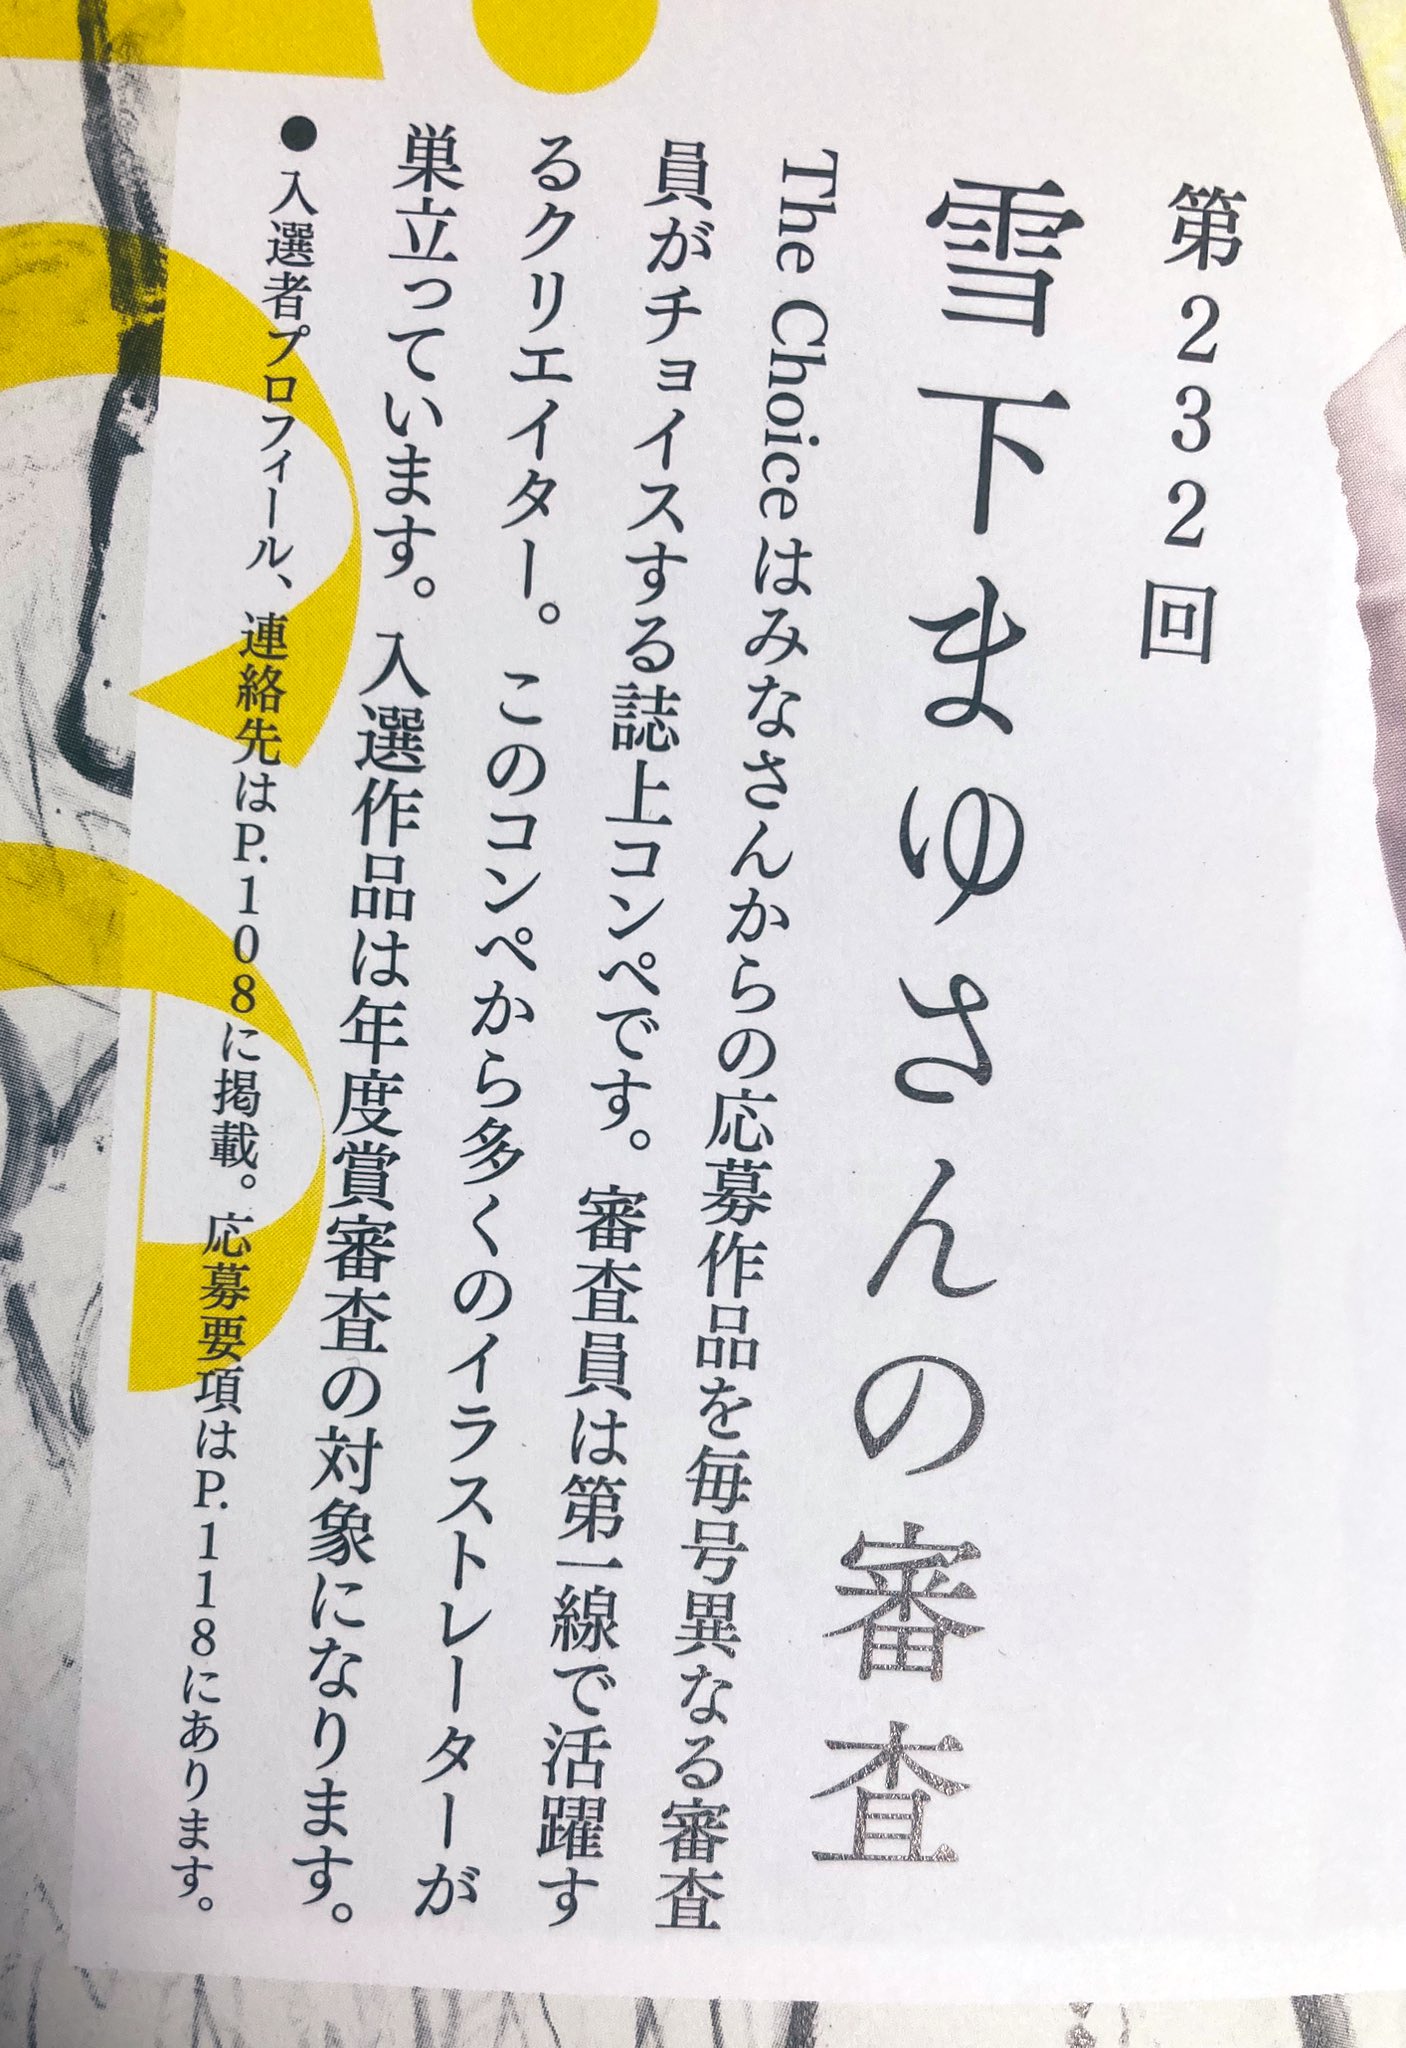 第232回
雪下まゆさんの審査
The Choiceはみなさんからの応募作品を毎号異なる審査
員がチョイスする誌上コンペです。審査員は第一線で活躍す
るクリエイター。このコンペから多くのイラストレーターが
巣立っています。入選作品は年度賞審査の対象になります。
●入選者プロフィール、連絡先はP.108に掲載。応募要項はP.118にあります。